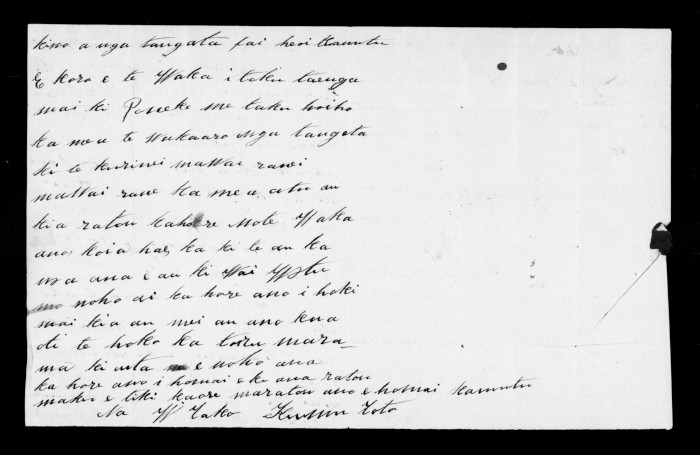 kino a nga tangata fai heoi kamutu
E koro e te Waka i toku taenga
mai ki Poneke me taku hoiho
ka mea te wakaaro nga tangata
ki te mawai rawei
mawai rawe ka mea atu au
kia ratou kahore Note Waka
ano koia hae ka ki te au ka
mea ana e au ki Wai
mo noho ai ka hore ano i hoki
mai kia au mei au ano kua
oti te hoko ka toru mara_
ma ki uta e noho ana
ka hore ano i homai eke ana ratou
maku e tiki kaore maratou ano e homai kamutu
Na W Tako